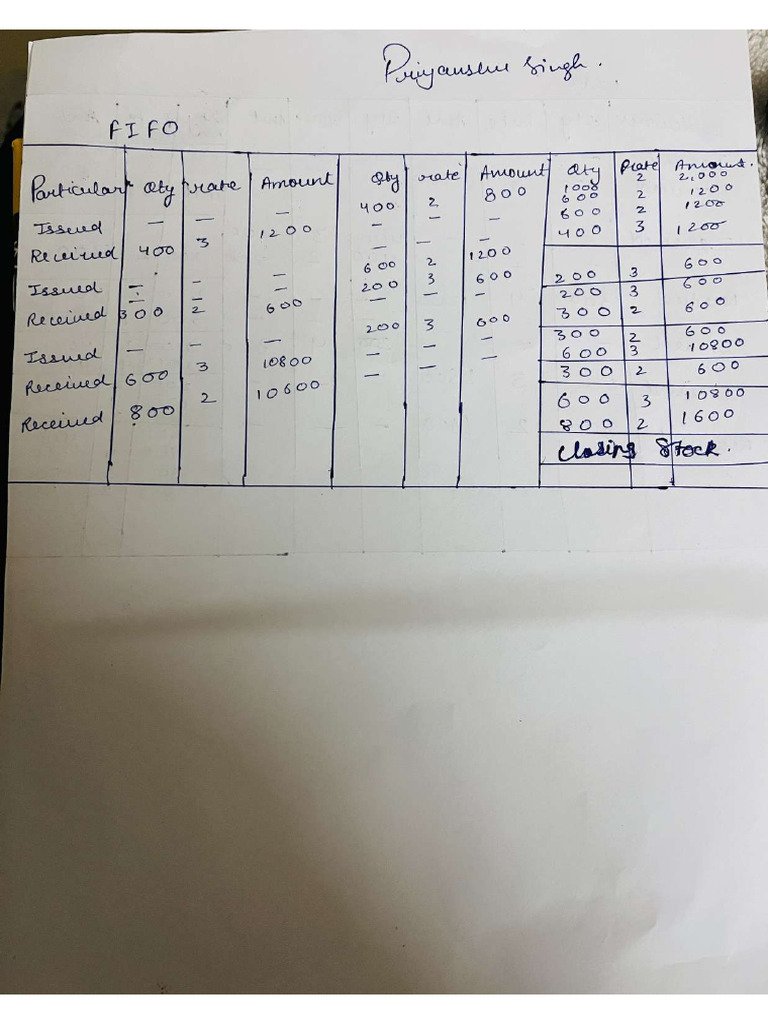 Priyanshu Singh.
FIFO
Particular Qty rate Amount Qty rate Amount Qty Rate Amount.
1000 2 2,000
Issued — — — 400 2 800 600 2 1200
600 2 1200
Received 400 3 1200 — — — 400 3 1200
Issued — — — 600 2 1200
200 3 600 200 3 600
200 3 600
Received 300 2 600 — — — 300 2 600
Issued — — — 200 3 600 300 2 600
600 3 10800
Received 600 3 10800 — — — 300 2 600
Received 800 2 10600 — — — 600 3 10800
800 2 1600
Closing Stock.